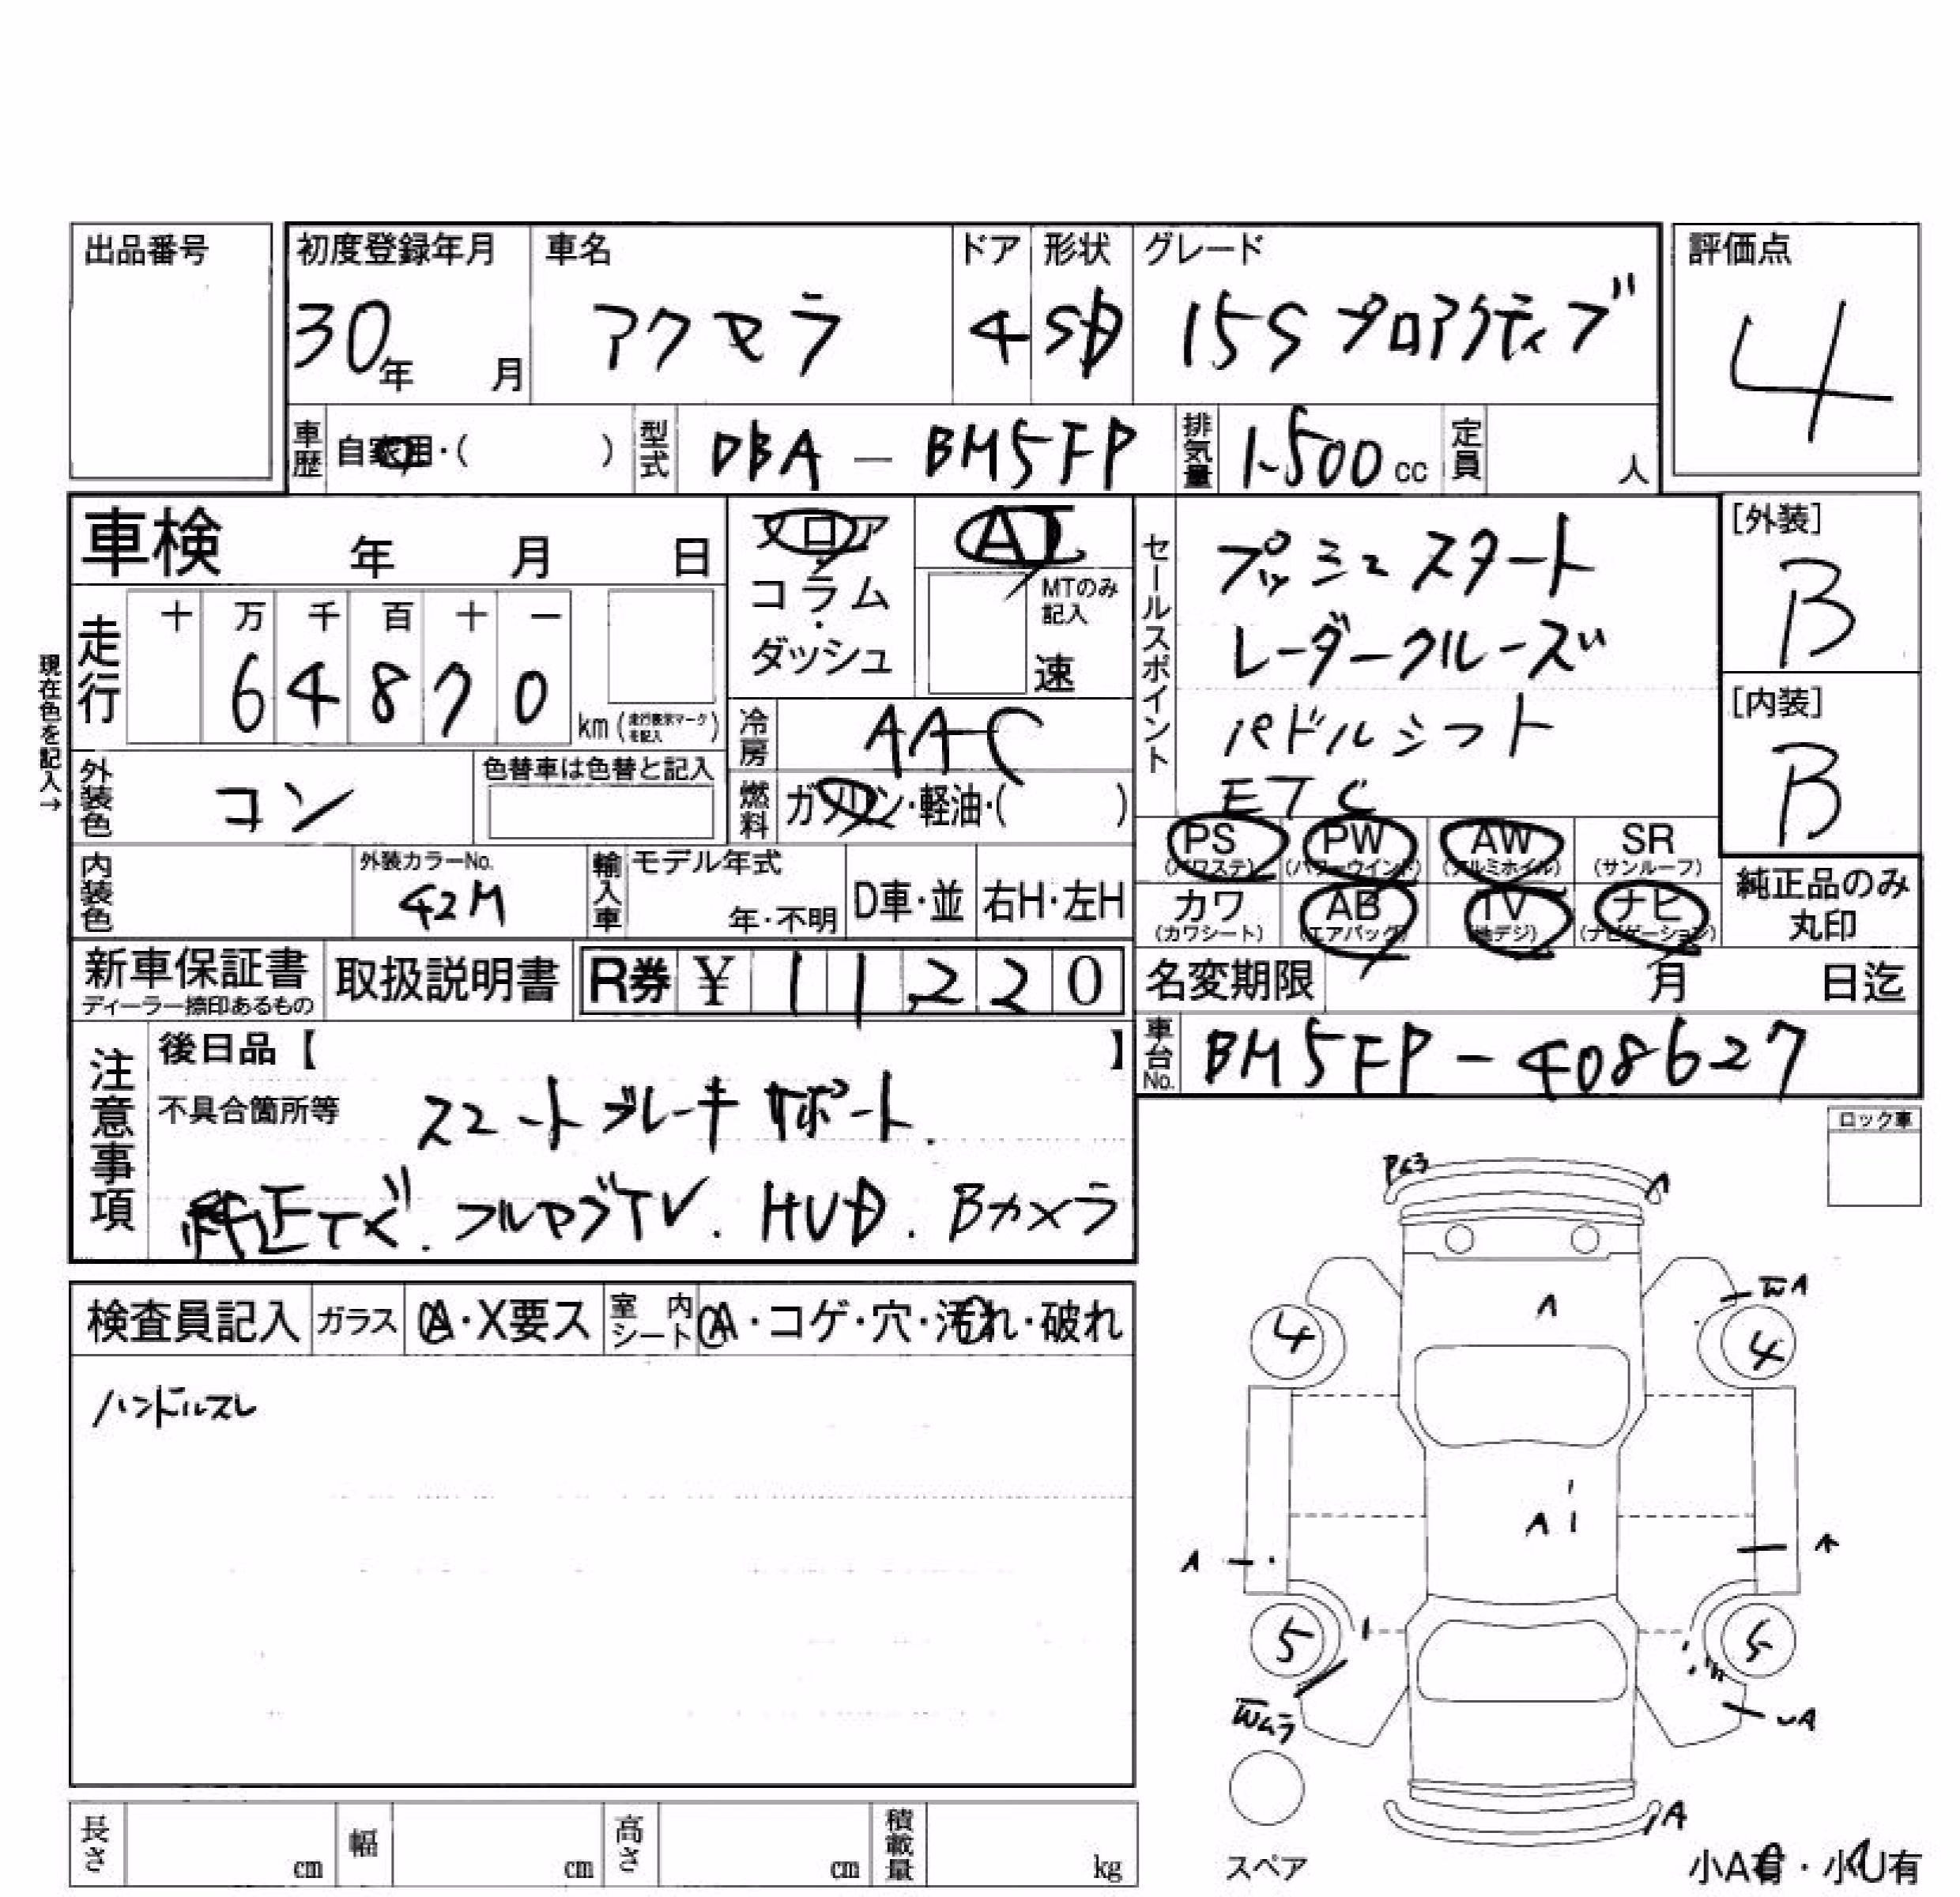 出品番号
初度登録年月 車名 ドア 形状 グレード 評価点
30年 月 アクセラ 4 SD 15S プロアクティブ 4
車歴 自家用・( ) 型式 DBA - BM5FP 排気量 1.500cc 定員 人
車検 年 月 日
フロア・コラム・ダッシュ
AT
MTのみ記入
速
走行 十 万 千 百 十 一
6 4 8 7 0 km(走行表示マークを記入)
現在色を記入→
冷房 AAC
外装色 コン 色替車は色替と記入
燃料 ガソリン・軽油・( )
セールスポイント
プッシュスタート
レーダークルーズ
パドルシフト
ETC
[外装]
B
[内装]
B
PS(パワステ) PW(パワーウインド) AW(アルミホイル) SR(サンルーフ)
カワ(カワシート) AB(エアバッグ) TV(地デジ) ナビ(ナビゲーション)
純正品のみ丸印
内装色 外装カラーNo. 42M 輸入車 モデル年式 年・不明 D車・並 右H・左H
新車保証書 ディーラー捺印あるもの 取扱説明書 R券 ¥ 11220
名変期限 月 日迄
車台No. BM5FP-408627
注意事項
後日品【 】
不具合箇所等 スマートブレーキサポート.
純正ナビ.フルセグTV.HUD.Bカメラ
ロック車
検査員記入 ガラス A・X要ス 室内シート A・コゲ・穴・汚れ・破れ
ハンドルスレ
A
A
4 4
A
A
A A
5 5
A
A
スペア
小A有・小U有
長さ cm 幅 cm 高さ cm 積載量 kg